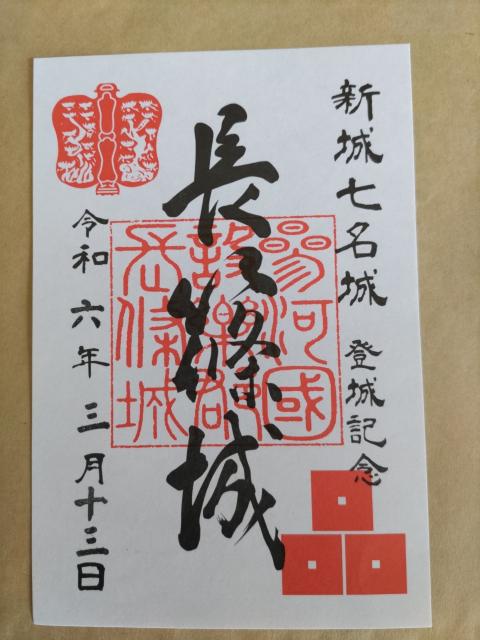 新城七名城 登城記念
長篠城
參河國
設樂郡
長篠城
令和六年三月十三日